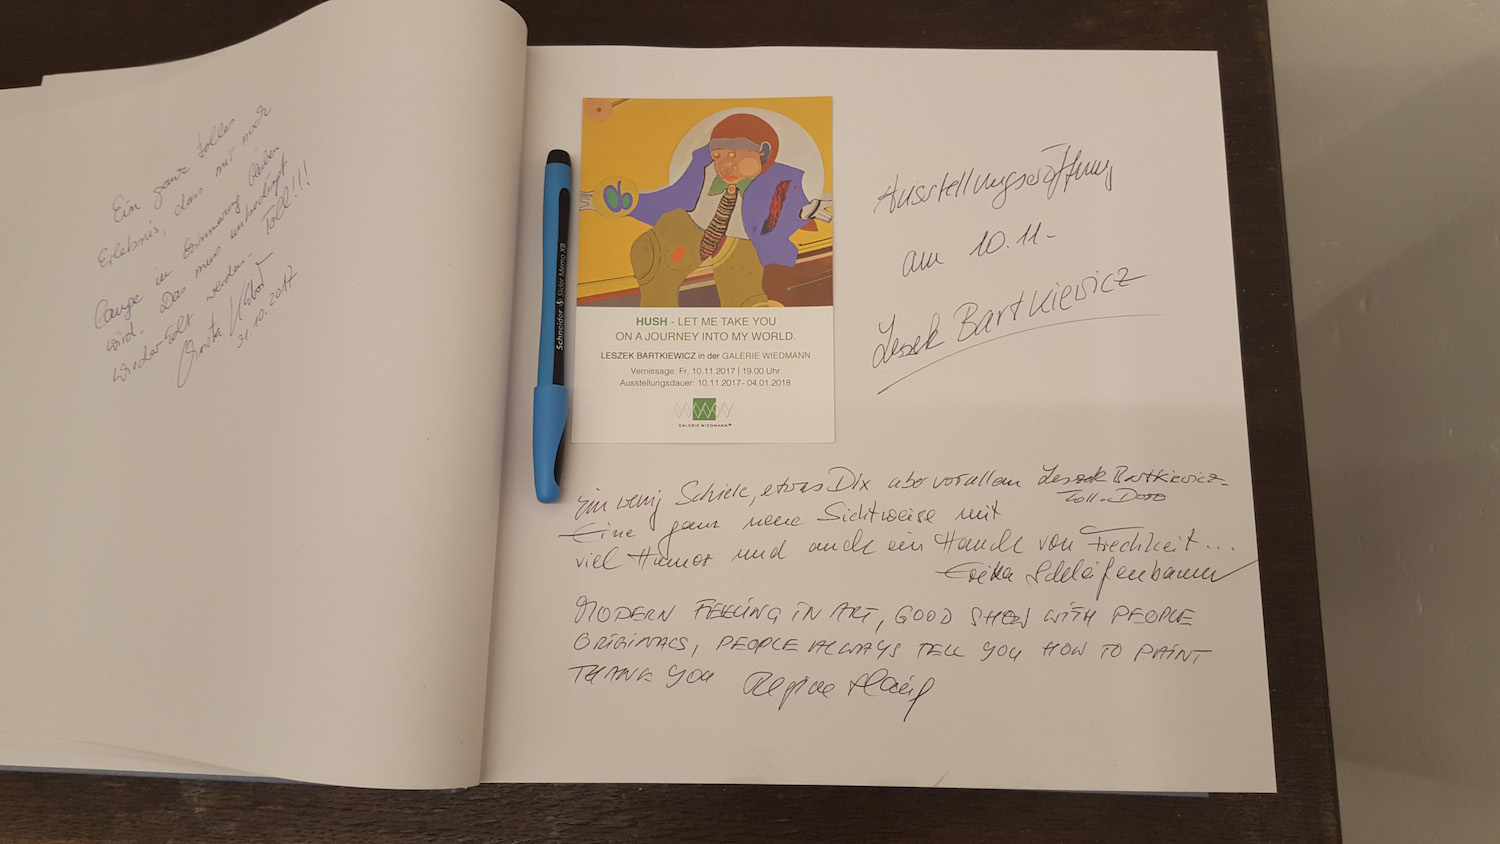 Ein ganz tolles
Erlebnis, das mir noch
lange in Erinnerung bleiben
wird. Das muss unbedingt
wiederholt werden. Toll!!!
31.10.2017
Schneider Slider Memo XB
HUSH - LET ME TAKE YOU
ON A JOURNEY INTO MY WORLD.
LESZEK BARTKIEWICZ in der GALERIE WIEDMANN
Vernissage: Fr, 10.11.2017 | 19.00 Uhr
Ausstellungsdauer: 10.11.2017- 04.01.2018
GALERIE WIEDMANN
Ausstellungseröffnung
am 10.11-
Leszek Bartkiewicz
Ein wenig Schiele, etwas Dix aber vor allem Leszek Bartkiewicz-
Toll-
Eine ganz neue Sichtweise mit
viel Humor und auch ein Hauch von Frechheit...
Erika Schleifenbaum
MODERN FEELING IN ART, GOOD SHOW WITH PEOPLE
ORIGINALS, PEOPLE ALWAYS TELL YOU HOW TO PAINT
THANK YOU Regine